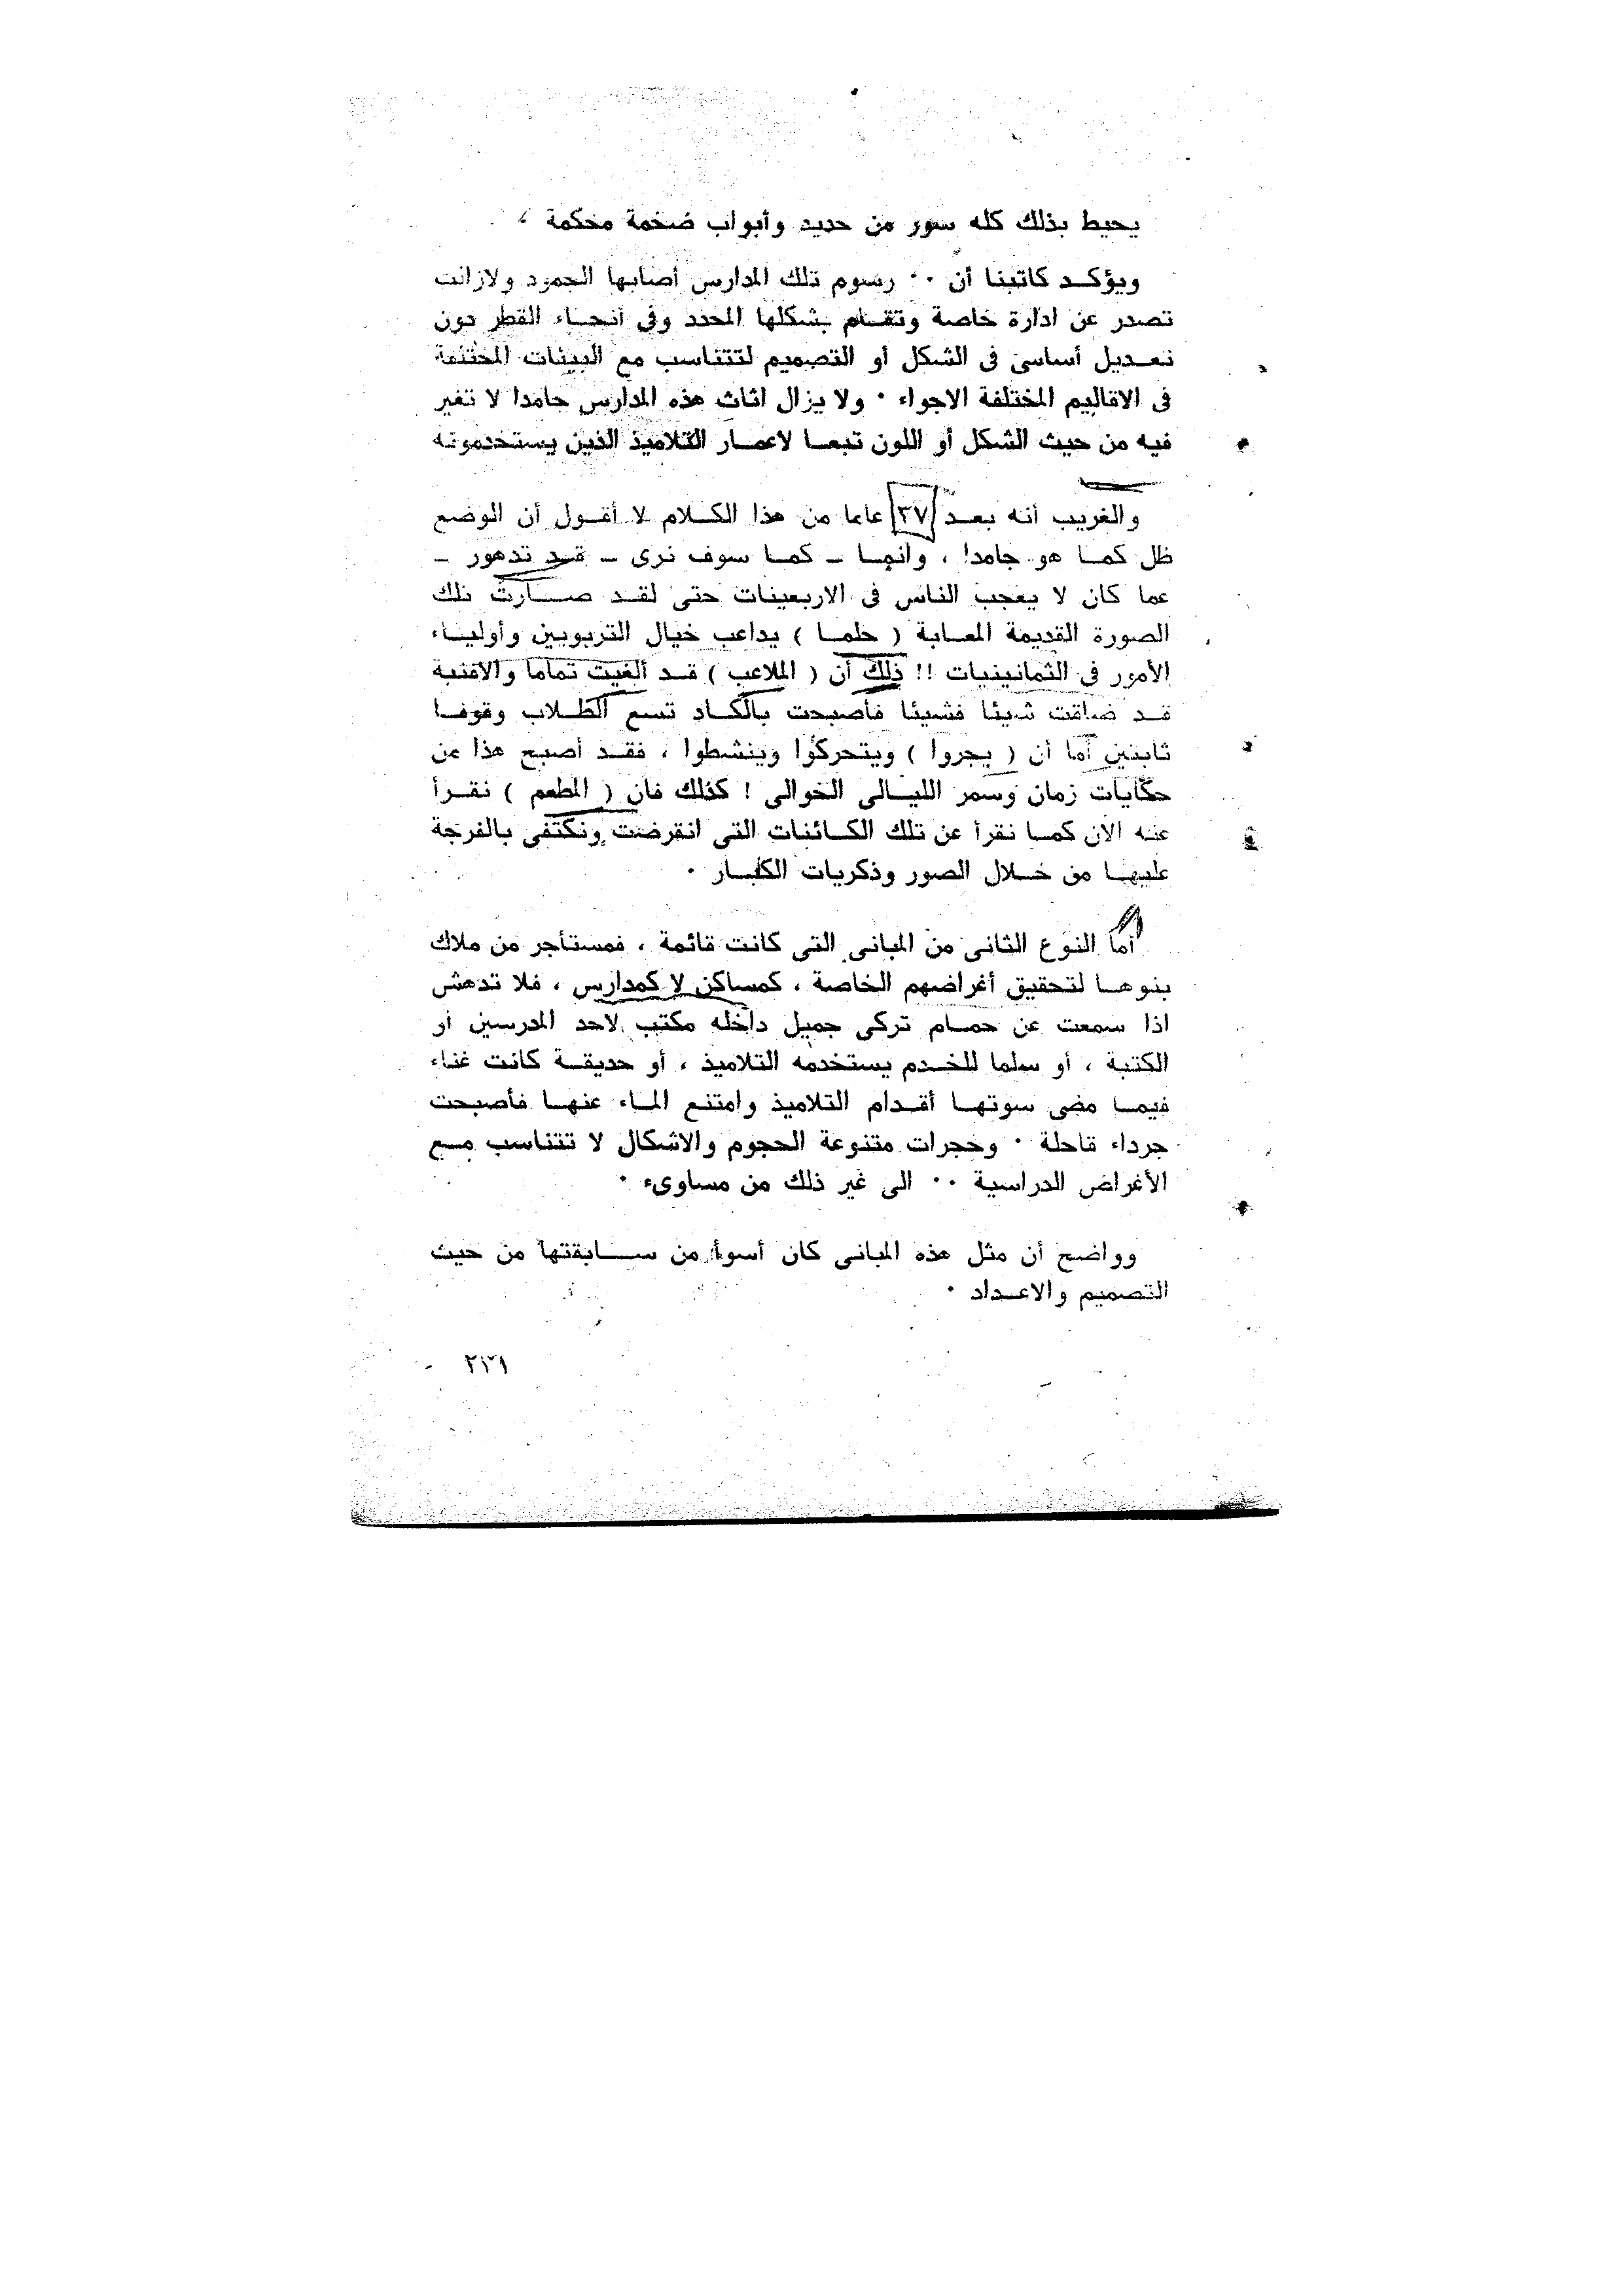 يحيط بذلك كله سور من حديد وأبواب ضخمة محكمة ،
ويؤكـد كاتبنا أن ٠٠ رسوم تلك المدارس أصابها الجمود ولازالت
تصدر عن ادارة خاصة وتقـام بشكلها المحدد وفى أنحـاء القطر دون
تعـديل أساسى فى الشكل أو التصميم لتتناسب مع البيئات المختلفة
فى الاقاليم المختلفة الاجواء ٠ ولا يزال اثاث هذه المدارس جامدا لا تغير
فيه من حيث الشكل أو اللون تبعـا لاعمـار التلاميذ الذين يستخدمونه
والغريب أنه بعـد ٣٧ عاما من هذا الكـلام لا أقـول أن الوضع
ظل كمـا هو جامدا ، وانمـا ـ كمـا سوف نرى ـ قـد تدهور ـ
عما كان لا يعجب الناس فى الاربعينات حتى لقـد صـارت تلك
الصورة القديمة المعـابة ( حلمـا ) يداعب خيال التربويين وأوليـاء
الأمور فى الثمانينيات !! ذلك أن ( الملاعب ) قـد ألغيت تماما والافنية
قـد ضاقت شيئا فشيئا فأصبحت بالكـاد تسع الطـلاب وقوفـا
ثابتين أما أن ( يجروا ) ويتحركوا وينشطوا ، فقـد أصبح هذا من
حكايات زمان وسمر الليـالى الخوالى ! كذلك فان ( المطعم ) نقـرأ
عنه الآن كمـا نقرأ عن تلك الكـائنات التى انقرضت ونكتفى بالفرجة
عليهـا من خـلال الصور وذكريات الكبـار ٠
أما النوع الثانى من المبانى التى كانت قائمة ، فمستأجر من ملاك
بنوهـا لتحقيق أغراضهم الخاصة ، كمساكن لا كمدارس ، فلا تدهش
اذا سمعت عن حمـام تركى جميل داخله مكتب لاحد المدرسين أو
الكتبة ، أو سلما للخـدم يستخدمه التلاميذ ، أو حديقـة كانت غناء
فيمـا مضى سوتهـا أقـدام التلاميذ وامتنع المـاء عنهـا فأصبحت
جرداء قاحلة ٠ وحجرات متنوعة الحجوم والاشكال لا تتناسب مـع
الأغراض الدراسية ٠٠ الى غير ذلك من مساوىء ٠
وواضح أن مثل هذه المبانى كان أسوأ من سـابقتها من حيث
التصميم والاعـداد ٠